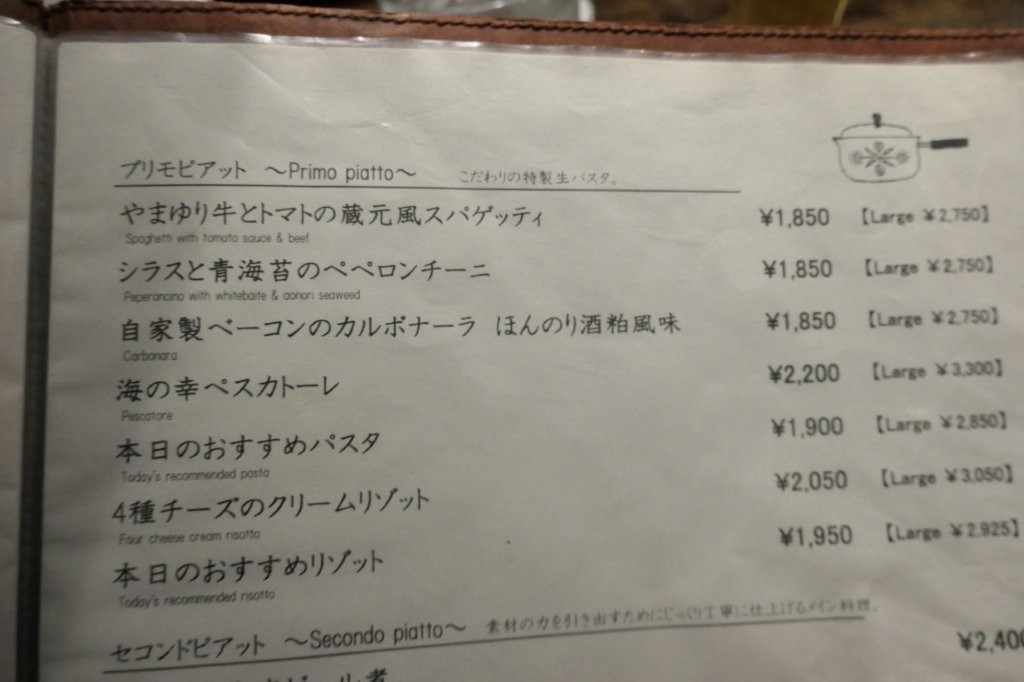 プリモピアット 〜Primo piatto〜 こだわりの特製生パスタ。
やまゆり牛とトマトの蔵元風スパゲッティ ¥1,850 【Large ¥2,750】
Spaghetti with tomato sauce & beef
シラスと青海苔のペペロンチーニ ¥1,850 【Large ¥2,750】
Peperoncino with whitebaite & aonori seaweed
自家製ベーコンのカルボナーラ ほんのり酒粕風味 ¥1,850 【Large ¥2,750】
Carbonara
海の幸ペスカトーレ ¥2,200 【Large ¥3,300】
Pescatore
本日のおすすめパスタ ¥1,900 【Large ¥2,850】
Today's recommended pasta
4種チーズのクリームリゾット ¥2,050 【Large ¥3,050】
Four cheese cream risotto
本日のおすすめリゾット ¥1,950 【Large ¥2,925】
Today's recommended risotto
セコンドピアット 〜Secondo piatto〜 素材の力を引き出すためにじっくり丁寧に仕上げるメイン料理。